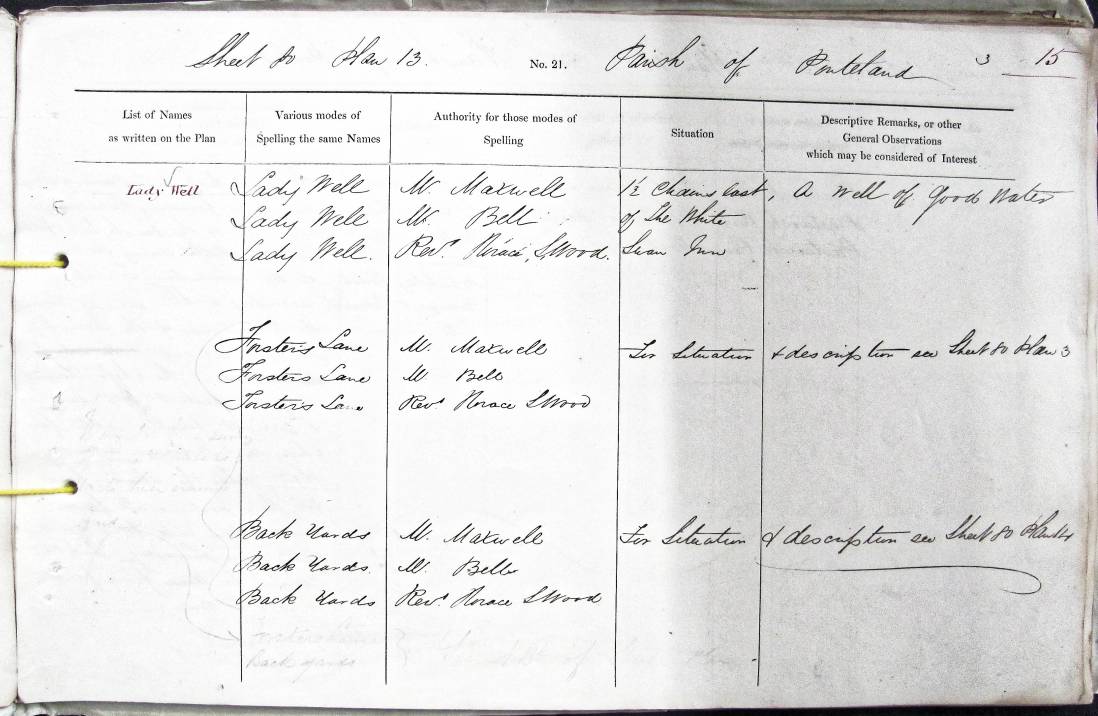 Sheet 80 Plan 13. No. 21. Parish of Ponteland 3 15
List of Names
as written on the Plan
Various modes of
Spelling the same Names
Authority for those modes of
Spelling
Situation
Descriptive Remarks, or other
General Observations
which may be considered of Interest
Lady Well Lady Well Mr. Maxwell 1½ Chains East, A Well of good Water
Lady Well Mr. Bell of The White
Lady Well. Revd. Horace S Wood. Swan Inn
Forsters Lane Mr. Maxwell For Situation & description see Sheet 80 Plan 3
Forsters Lane Mr Bell
Forsters Lane Revd Horace S Wood
Back Yards Mr. Maxwell For Situation & description see Sheet 80 Plan
Back Yards. Mr. Bell
Back Yards Revd. Horace S Wood
Forsters Lane
Back yards